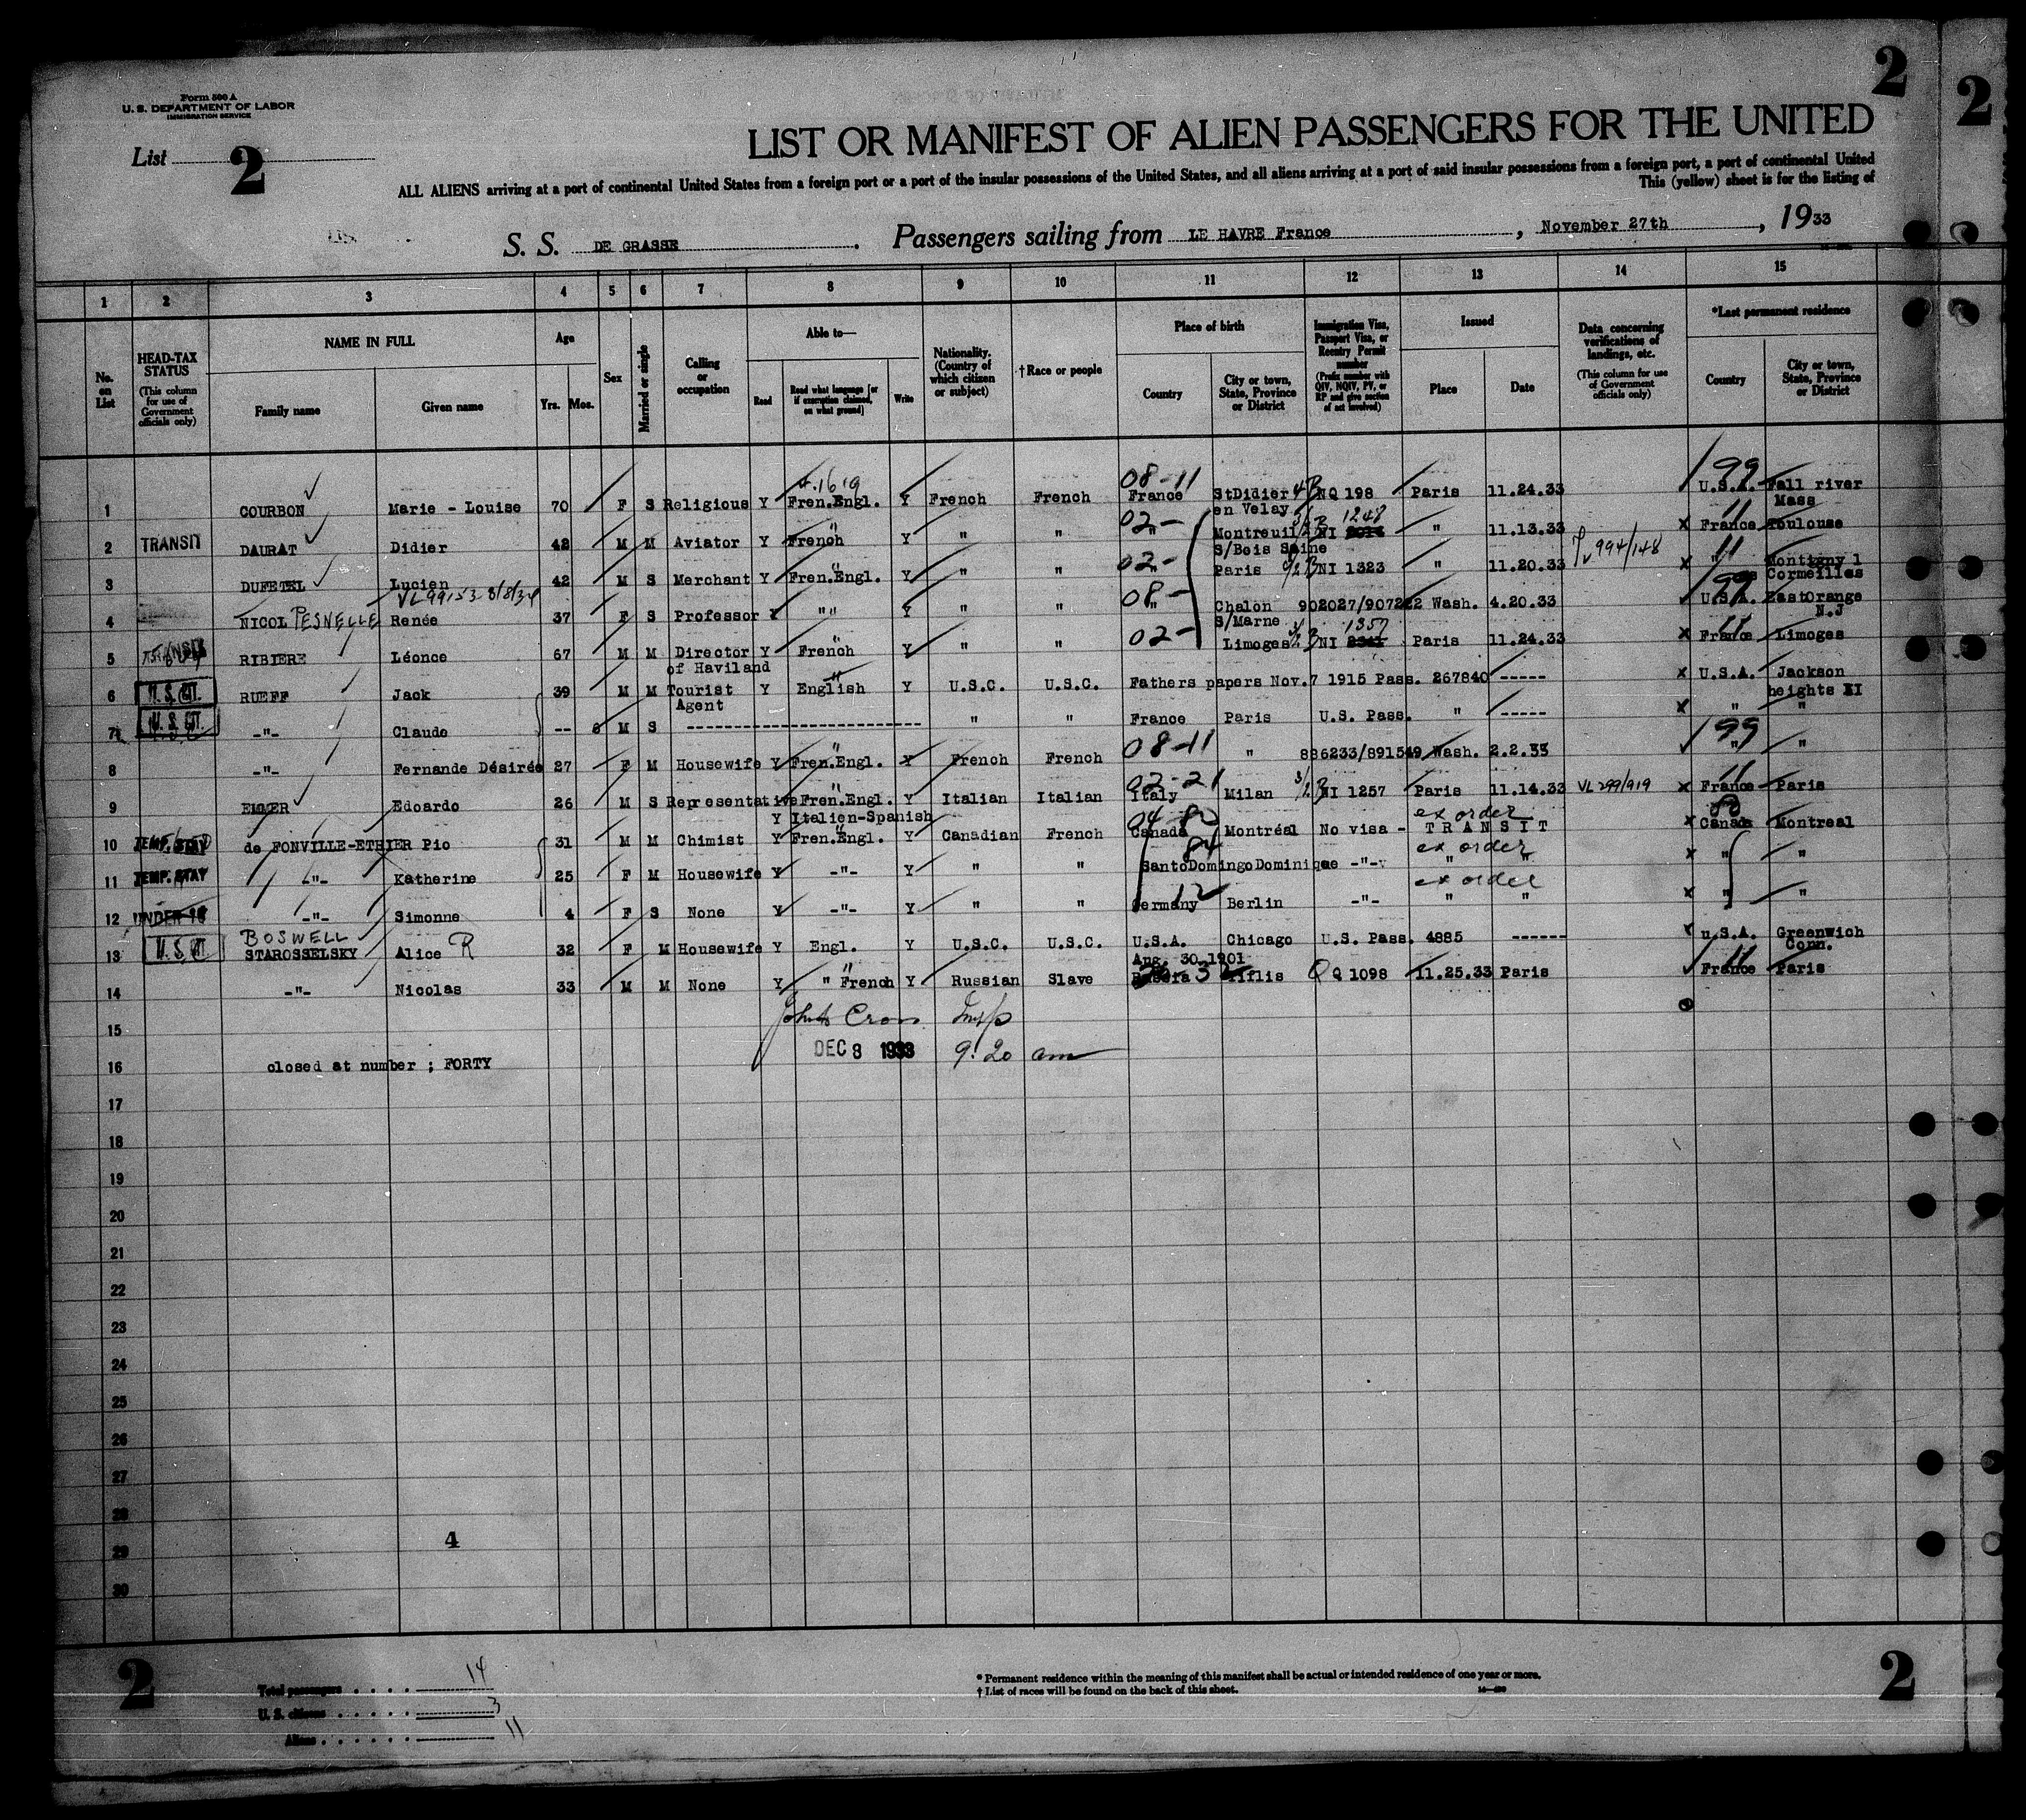 2
2
Form 500 A
U. S. DEPARTMENT OF LABOR
IMMIGRATION SERVICE
List 2
LIST OR MANIFEST OF ALIEN PASSENGERS FOR THE UNITED
ALL ALIENS arriving at a port of continental United States from a foreign port or a port of the insular possessions of the United States, and all aliens arriving at a port of said insular possessions from a foreign port, a port of continental United
This (yellow) sheet is for the listing of
S. S. DE GRASSE. Passengers sailing from LE HAVRE France, November 27th, 1933
1 2 3 4 5 6 7 8 9 10 11 12 13 14 15
No. on List
HEAD-TAX STATUS (This column for use of Government officials only)
NAME IN FULL
Family name
Given name
Age
Yrs. Mos.
Sex
Married or single
Calling or occupation
Able to—
Read
Read what language [or if exemption claimed, on what ground]
Write
Nationality. (Country of which citizen or subject)
†Race or people
Place of birth
Country
City or town, State, Province or District
Immigration Visa, Passport Visa, or Reentry Permit number (Prefix number with QIV, NQIV, PV, or RP and give section of act involved)
Issued
Place
Date
Data concerning verifications of landings, etc. (This column for use of Government officials only)
*Last permanent residence
Country
City or town, State, Province or District
1 COURBON Marie - Louise 70 F S Religious Y Fren.Engl. Y French French 08-11 France StDidier en Velay NQ 198 Paris 11.24.33 99 U.S.A. Fall river Mass
2 TRANSIT DAURAT Didier 42 M M Aviator Y French Y " " 02- " Montreuil S/Bois Seine NI 1248 " 11.13.33 x 11 France Toulouse
3 DUFETEL Lucien 42 M S Merchant Y Fren.Engl. Y " " 02- " Paris NI 1323 " 11.20.33 994/148 x 11 " Montigny l Cormeilles
VL 99153 8/8/34
4 NICOL PESNELLE Renée 37 F S Professor Y "" Y " " 08- " Chalon S/Marne 902027/907222 Wash. 4.20.33 99 U.S.A. EastOrange N.J
5 TRANSIT RIBIERE Léonce 67 M M Director of Haviland Y French Y " " 02- Limoges NI 1357 Paris 11.24.33 x 11 France Limoges
6 U. S. CIT. RUEFF Jack 39 M M Tourist Agent Y English Y U.S.C. U.S.C. Fathers papers Nov.7 1915 Pass. 267840 ----- x U.S.A. Jackson heights
7 U. S. CIT. -"- Claude -- 6 M S ---------- " " France Paris U.S. Pass. " ----- x " "
8 -"- Fernande Désirée 27 F M Housewife Y Fren.Engl. Y French French 08-11 " 886233/891549 Wash. 2.2.33 99 " "
9 Edoardo 26 M S Representative Y Fren.Engl. Italien-Spanish Y Italian Italian 02-21 Italy Milan NI 1257 Paris 11.14.33 VL 299/919 x 11 France Paris
10 TEMP. STAY de FONVILLE-ETHIER Pio 31 M M Chimist Y Fren.Engl. Y Canadian French Canada Montréal No visa - ex order TRANSIT x Canada Montreal
11 TEMP. STAY -"- Katherine 25 F M Housewife Y -"- Y " " 84 SantoDomingo Dominique -"- ex order " " x " "
12 UNDER 16 -"- Simonne 4 F S None Y -"- Y " " 12 Germany Berlin -"- ex order " " x " "
13 U. S. CIT. BOSWELL STAROSSELSKY Alice R 32 F M Housewife Y Engl. Y U.S.C. U.S.C. U.S.A. Chicago Aug. 30.1901 U.S. Pass. 4885 ------ x U.S.A. Greenwich Conn.
14 -"- Nicolas 33 M M None Y " French Y Russian Slave Tiflis Q 1098 11.25.33 Paris 11 France Paris
15 Insp
DEC 8 1933 9:20 am
16 closed at number ; FORTY
17
18
19
20
21
22
23
24
25
26
27
28
29
30
4
2
Total passengers . . . . . 14
U. S. citizens . . . . . . 3
Aliens . . . . . . 11
* Permanent residence within the meaning of this manifest shall be actual or intended residence of one year or more.
† List of races will be found on the back of this sheet.
2